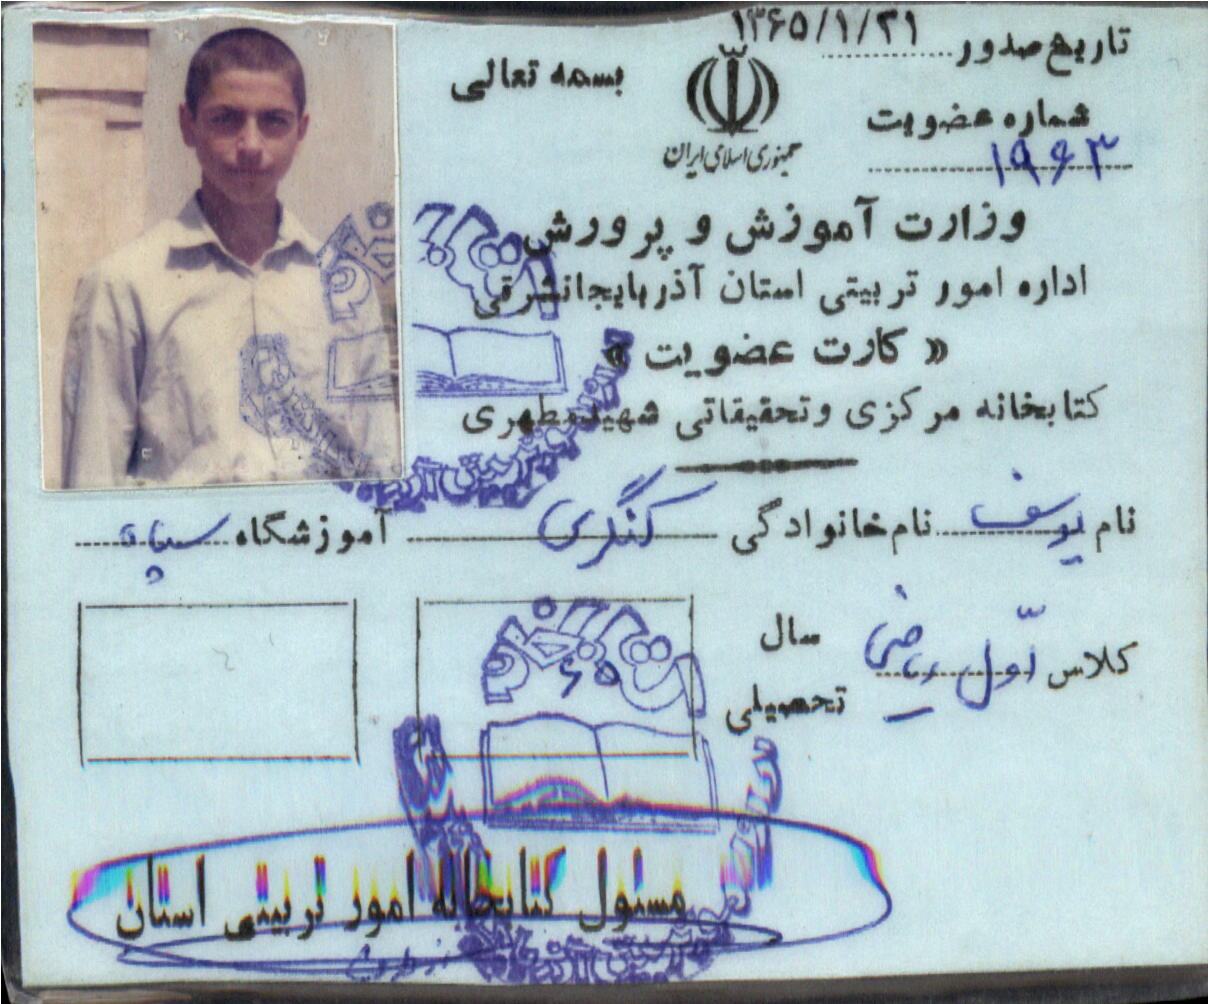 تاریخ صدور ۱۳۶۵/۱/۲۱
بسمه تعالی
جمهوری اسلامی ایران
شماره عضویت
۱۹۶۳
وزارت آموزش و پرورش
اداره امور تربیتی استان آذربایجانشرقی
« کارت عضویت »
کتابخانه مرکزی و تحقیقاتی شهید مطهری
نام یوسف نام خانوادگی کنگری آموزشگاه
کلاس اول ریاضی سال تحصیلی ۶۵
مسئول کتابخانه امور تربیتی استان